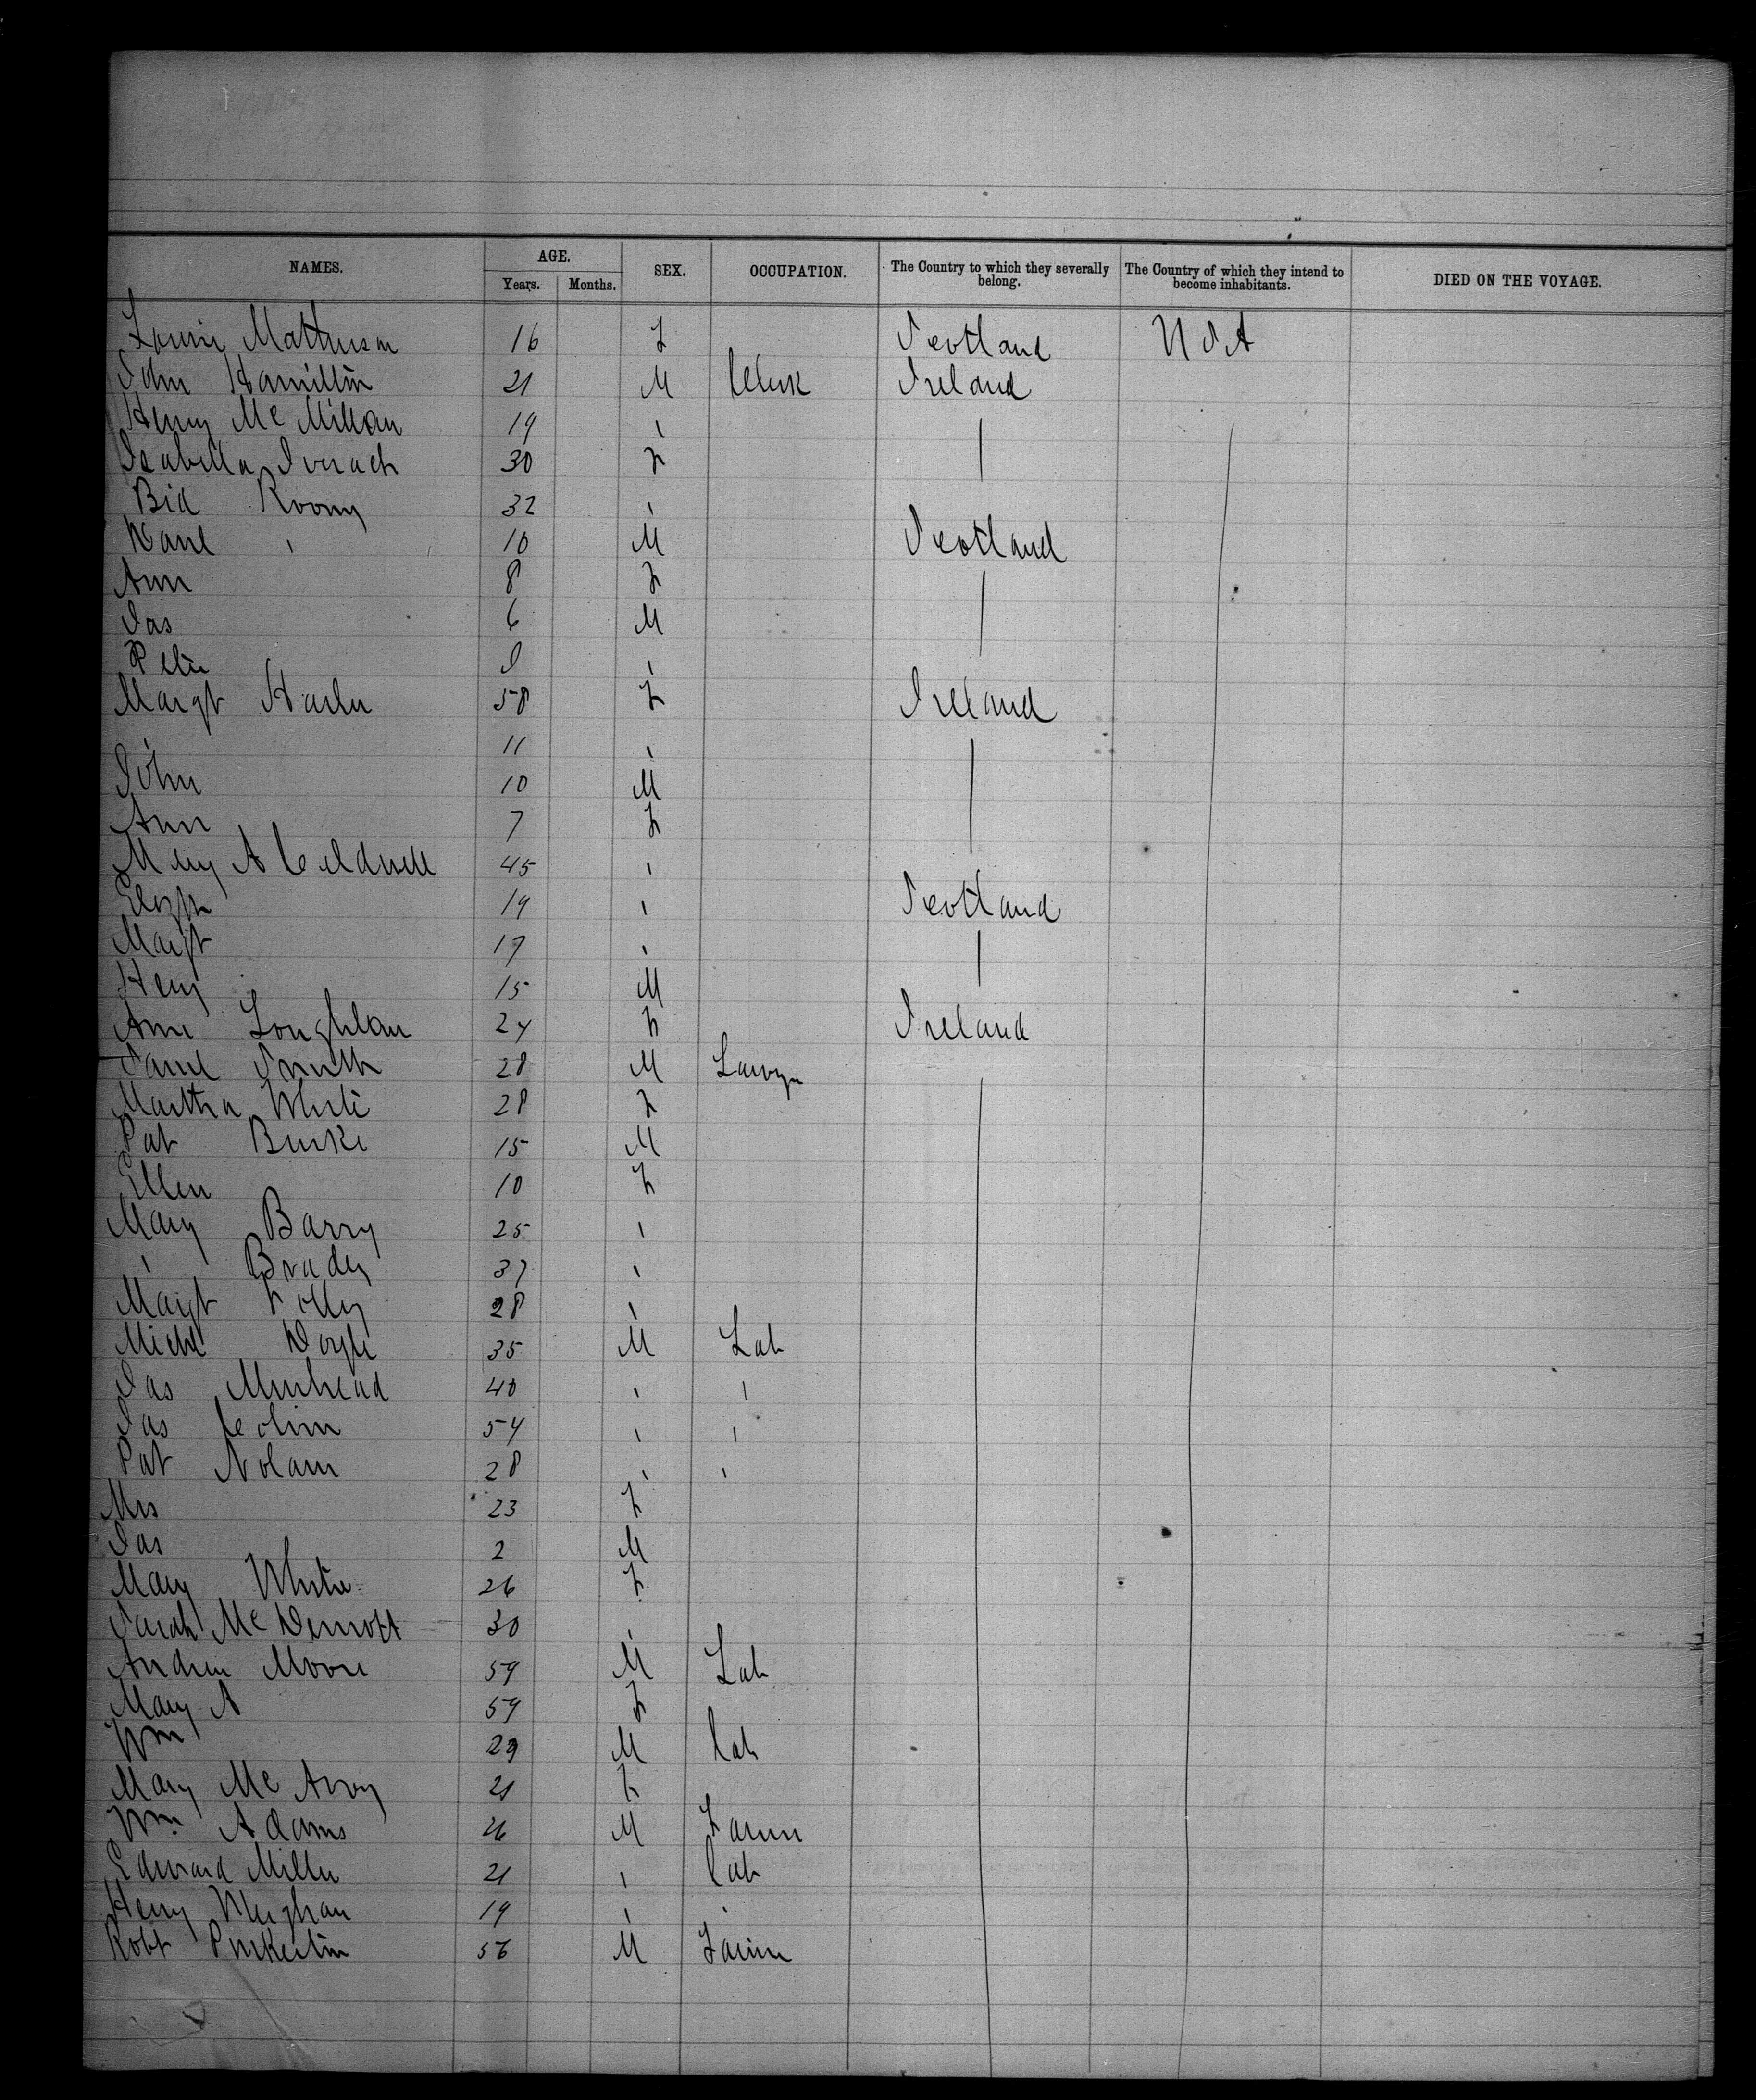 NAMES. AGE. SEX. OCCUPATION. The Country to which they severally belong. The Country of which they intend to become inhabitants. DIED ON THE VOYAGE.
Years. Months.
16 F Scotland USA
John Hamilton 21 M Clerk Ireland
Henry Mc Millan 19 "
Isabella 30 F
Bid Roony 32 "
10 M Scotland
Ann 8 F
Jas 6 M
Peter "
Margt 58 F Ireland
" 11 "
John 10 M
Ann 7 F
Mary A Caldwell 45 "
19 " Scotland
Margt 17 "
Heny 15 M
Ann Loughlan 24 F Ireland
Saml Smith 28 M
Martha White 28 F
Pat Burke 15 M
Ellen 10 F
Mary Barry 25 "
" Brady 37 "
Margt 28 "
Michl Doyle 35 M Lab
Jas Muirhead 40 " "
Jas 54 " "
Pat Nolan 28 " "
Mrs 23 F
Jas 2 M
Mary White 26 F
Sarah Mc Dermott 30 "
Andrew Moore 59 M Lab
Mary A 59 F
Wm 29 M lab
Mary Mc Avoy 21 F
Wm Adams 26 M Farmr
Edward Miller 21 " lab
Henry Meighan 19 " "
Robt Pinkerton 56 M Farmr